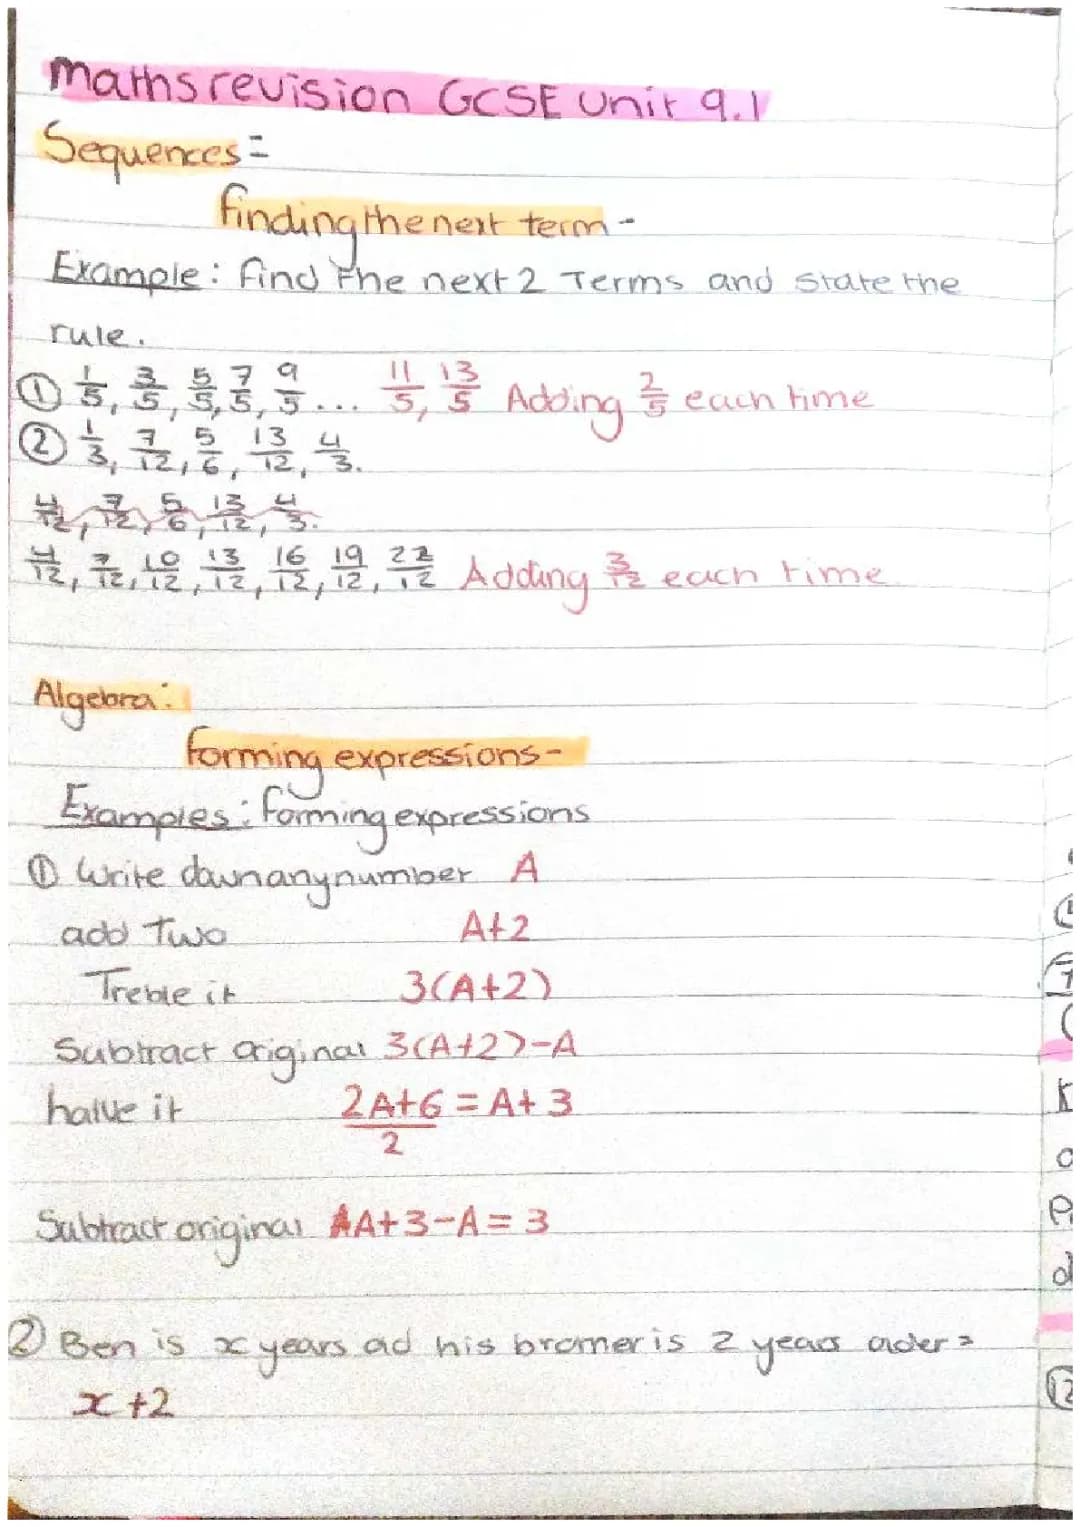 Maths revision GCSE Unit 9.1
Sequences =
finding the next term -
Example: find the next 2 Terms and state the
rule.
① 1/5, 3/5, 5/5, 7/5, 9/5 ... 11/5, 13/5 Adding 2/5 each time
② 1/3, 7/12, 5/6, 13/12, 4/3.
4/12, 7/12, 5/6, 13/12, 4/3.
4/12, 7/12, 10/12, 13/12, 16/12, 19/12, 22/12 Adding 3/12 each time
Algebra:
forming expressions-
Examples: forming expressions
① Write down any number A
add Two A+2
Treble it 3(A+2)
Subtract original 3(A+2)-A
halve it 2A+6/2 = A+3
Subtract original A+3-A=3
② Ben is x years old his brother is 2 years older =
x+2